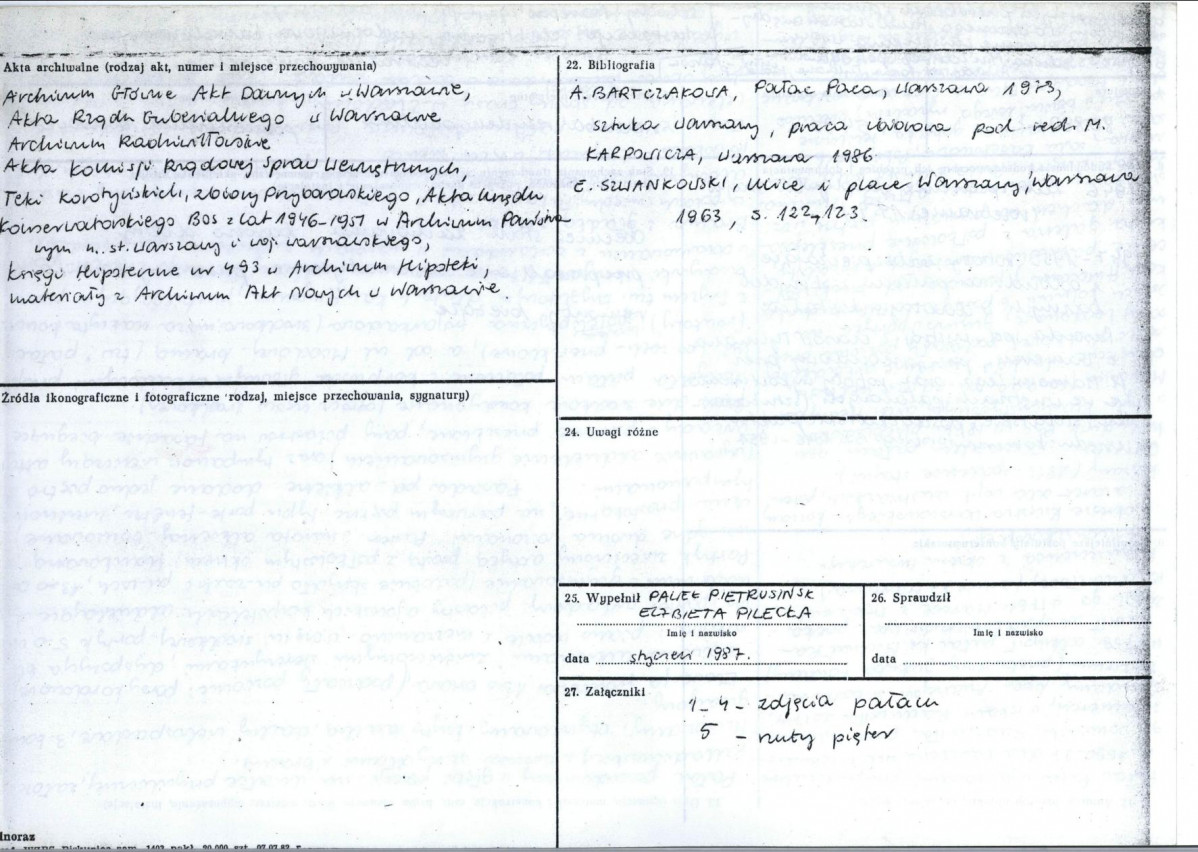 Akta archiwalne (rodzaj akt, numer i miejsce przechowywania)
Archiwum Główne Akt Dawnych w Warszawie,
Akta Rządu Gubernialnego w Warszawie
Archiwum Radziwiłłowskie
Akta Komisji Rządowej Spraw Wewnętrznych,
Teki Korotyńskich, zbiory Przybarowskiego, Akta Urzędu
Konserwatorskiego BOS z lat 1946-1951 w Archiwum Państwo
wym m. st. Warszawy i woj. warszawskiego,
Księgi Hipoteczne nr 493 w Archiwum Hipoteki,
materiały z Archiwum Akt Nowych w Warszawie
Źródła ikonograficzne i fotograficzne (rodzaj, miejsce przechowania, sygnatury)
22. Bibliografia
A. BARTCZAKOWA, Pałac Paca, Warszawa 1973,
Sztuka Warszawy, praca zbiorowa pod red. M.
KARPOWICZA, Warszawa 1986
E. SZWANKOWSKI, Ulice i place Warszawy, Warszawa
1963, s. 122, 123.
24. Uwagi różne
25. Wypełnił PAWEŁ PIETRUSIŃSK
ELŻBIETA PILECKA
Imię i nazwisko
data styczeń 1987.
26. Sprawdził
Imię i nazwisko
data
27. Załączniki
1-4 - zdjęcia pałacu
5 - rzuty pięter
dnoraz